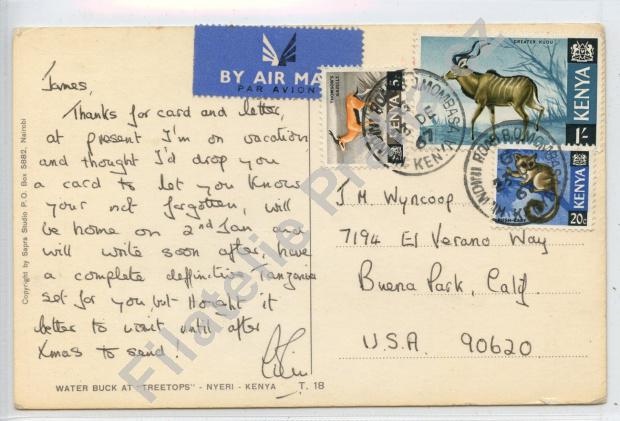 BY AIR MA
PAR AVION
THOMSON'S GAZELLE
KENYA
GREATER KUDU
KENYA
1/-
KENYA
20c
MOMBASA
KENYA
James,
Thanks for card and letter,
at present I'm on vacation
and thought I'd drop you
a card to let you know
your not forgotten, will
be home on 2nd Jan and
will write soon after, have
a complete deffinitive Tanzania
set for you, but thought it
better to wait until after
Xmas to send!
J M Wyncoop
7194 El Verano Way
Buena Park, Calif
U.S.A. 90620
WATER BUCK AT "TREETOPS" - NYERI - KENYA T. 18
Copyright by Sapra Studio P. O. Box 5882, Nairobi